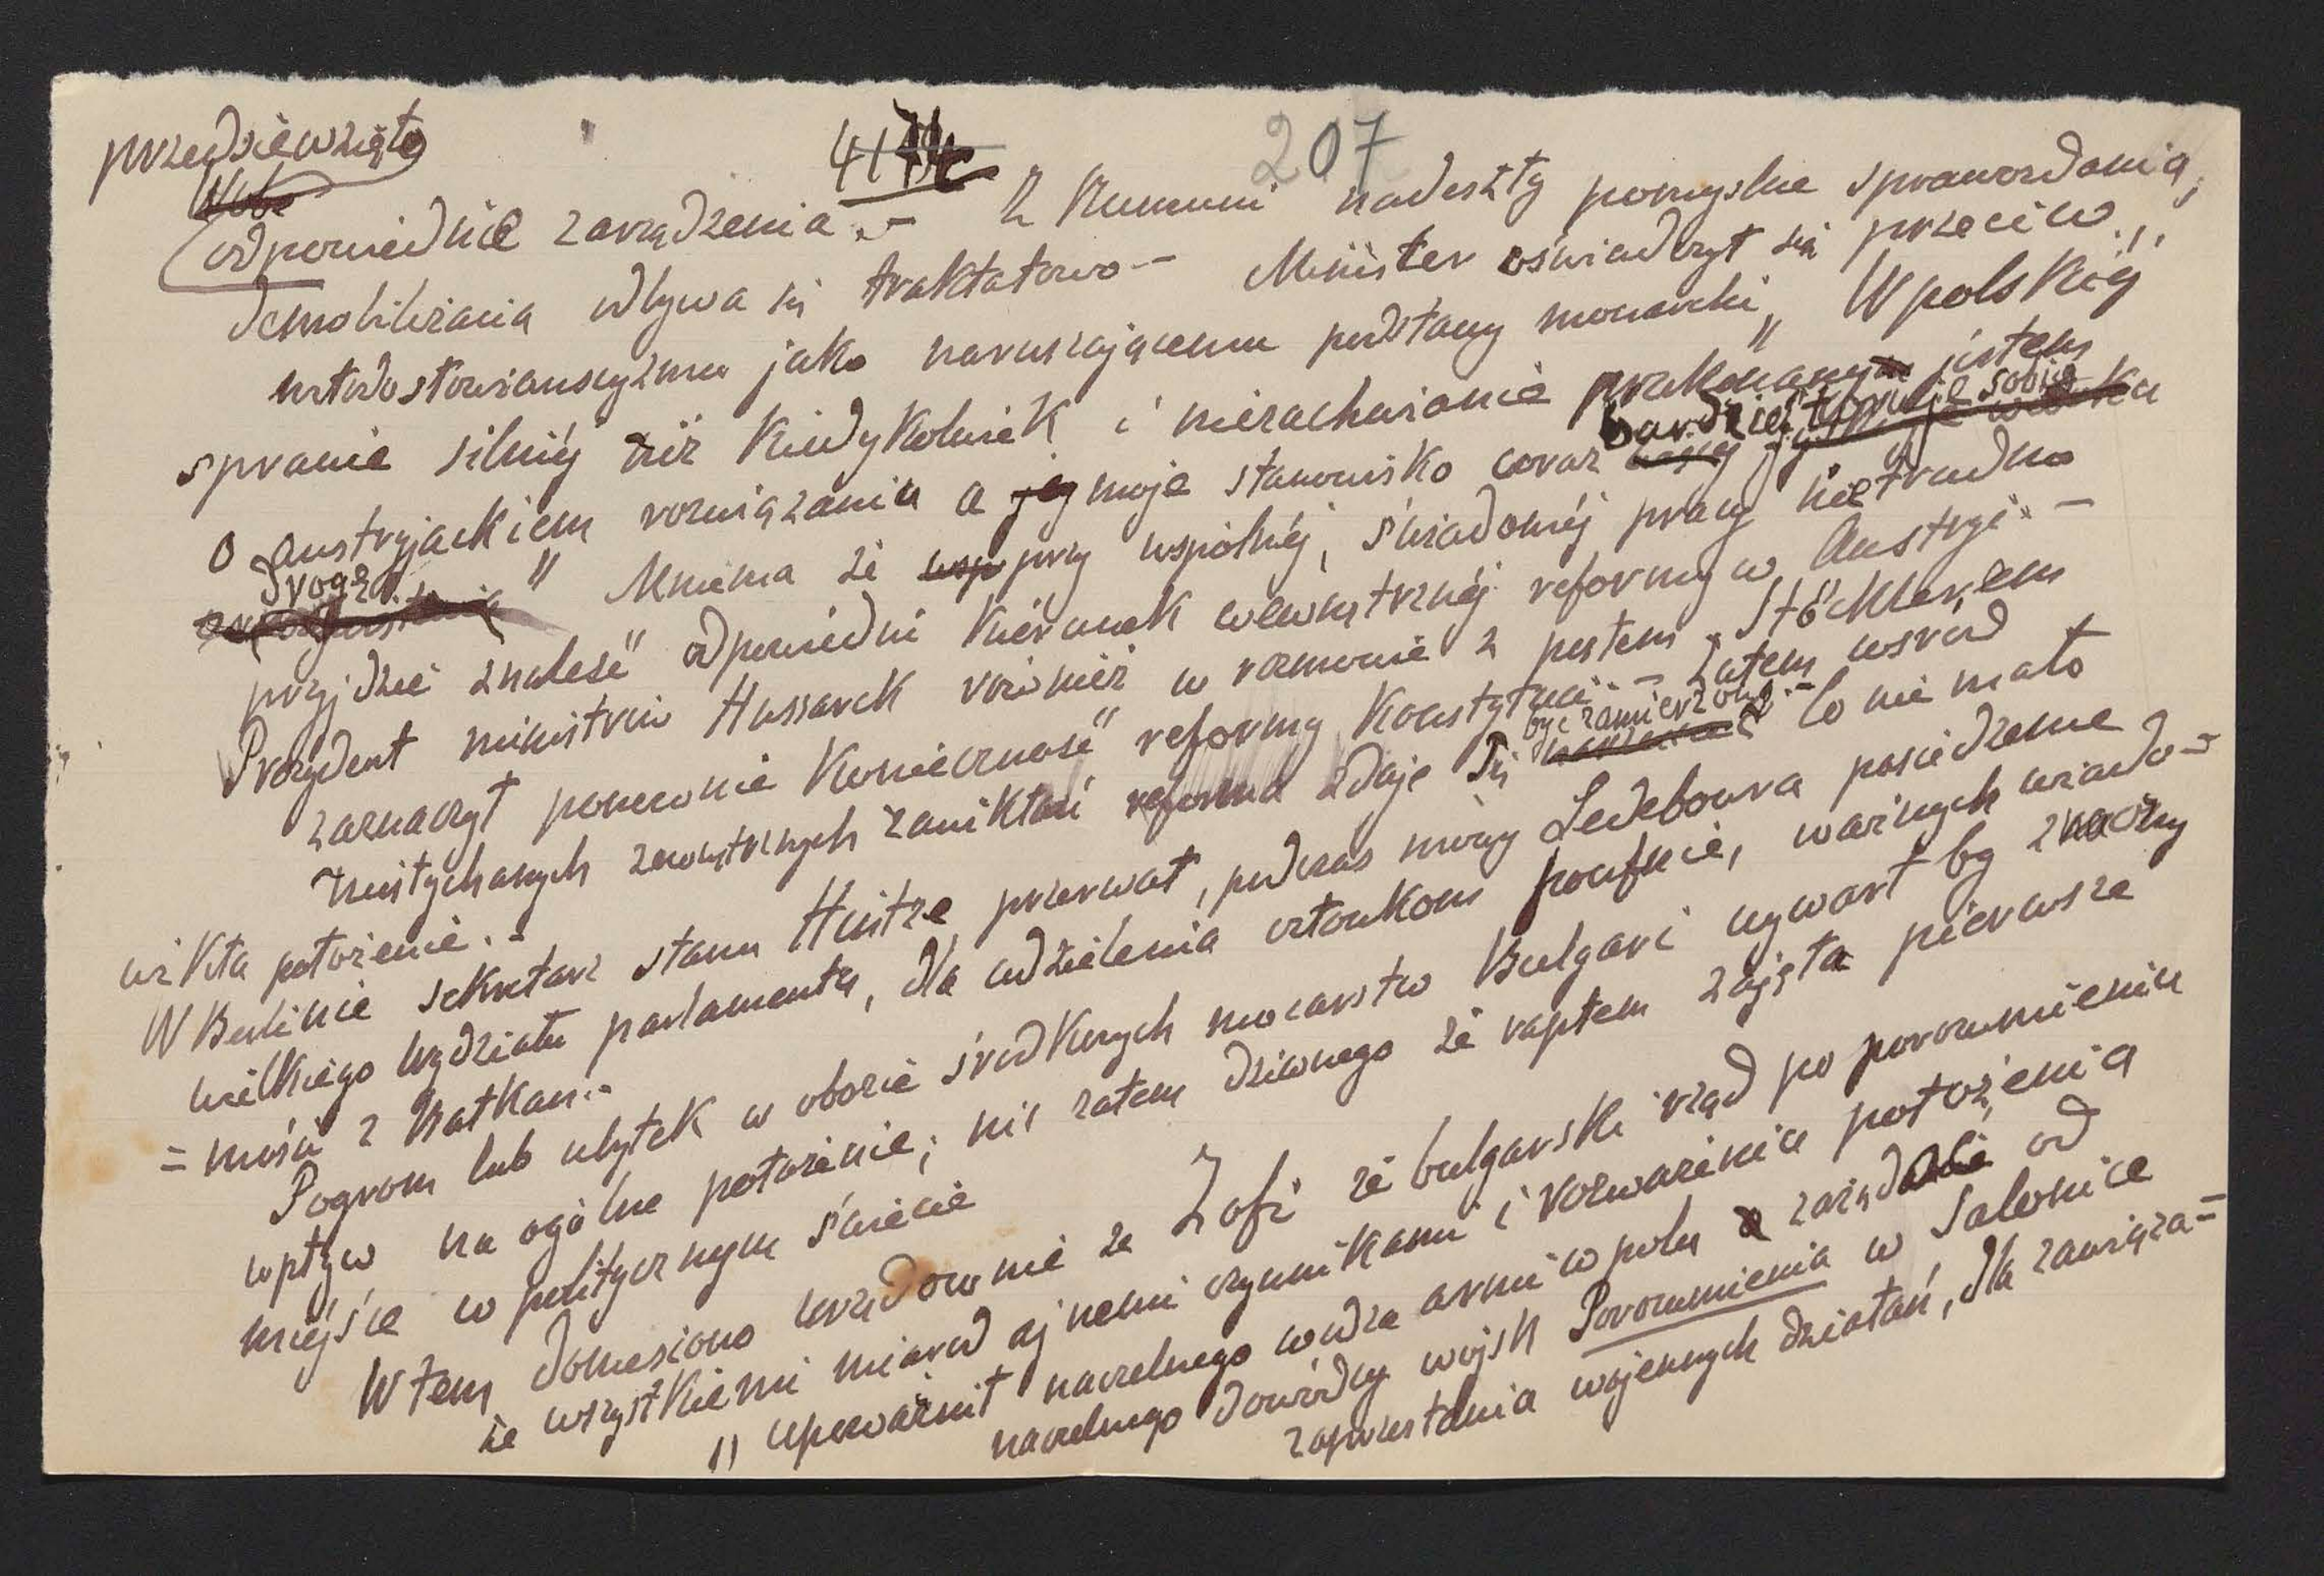 przedsiewzięto
4174
207
odpowiednie zarządzenia. – Z Rumuni nadeszły pomyslne sprawozdania,
demobilizacia odbywa się traktatowo – Minister oświadczył się przeciw
jako naruszającemu podstawy monarchi, „W polskiéj
sprawie silniéj niż kiedykolwiek i niezachwianie przekonany jestem
o austryjackiem rozwiązaniu a moje stanowisko coraz bardziéj toruje sobie
drogę" Mniema że przy wspólnéj, świadoméj pracy nie trudno
przyjdzie znaleść odpowiedni kierunek wewnętrznéj reformy w Austryi. –
Prezydent ministrów Hussarek również w rozmowie z posłem Stöcklerem
zaznaczył ponownie konieczność reformy konstytucii. – Zatem wsród
niesłychanych zewnętrznych zawikłań reforma zdaje się być zamierzoną. – Co nie mało
wikła położenie. –
W Berlinie sekretarz stanu Hintze przerwał, podczas mowy Ledeboura posiedzenie
wielkiego wydziału parlamentu, dla udzielenia członkom poufnie, ważnych wiado=
=mości z Bałkan. –
Pogrom lub ubytek w obozie środkowych mocarstw Bulgari wywarł by znaczny
wpływ na ogólne położenie; nic zatem dziwnego że raptem zajęła pierwsze
miejsce w politycznym świecie
Wtem doniesiono urzędownie ze Zofi że bulgarski rząd po porozumieniu
ze wszystkiemi miarodajnemi czynnikami i rozważeniu położenia
„upoważnił naczelnego wodza armii w polu zażądać od
naczelnego dowódcy wojsk Porozumienia w Salonice
zaprzestania wojennych działań, dla zawiąza=